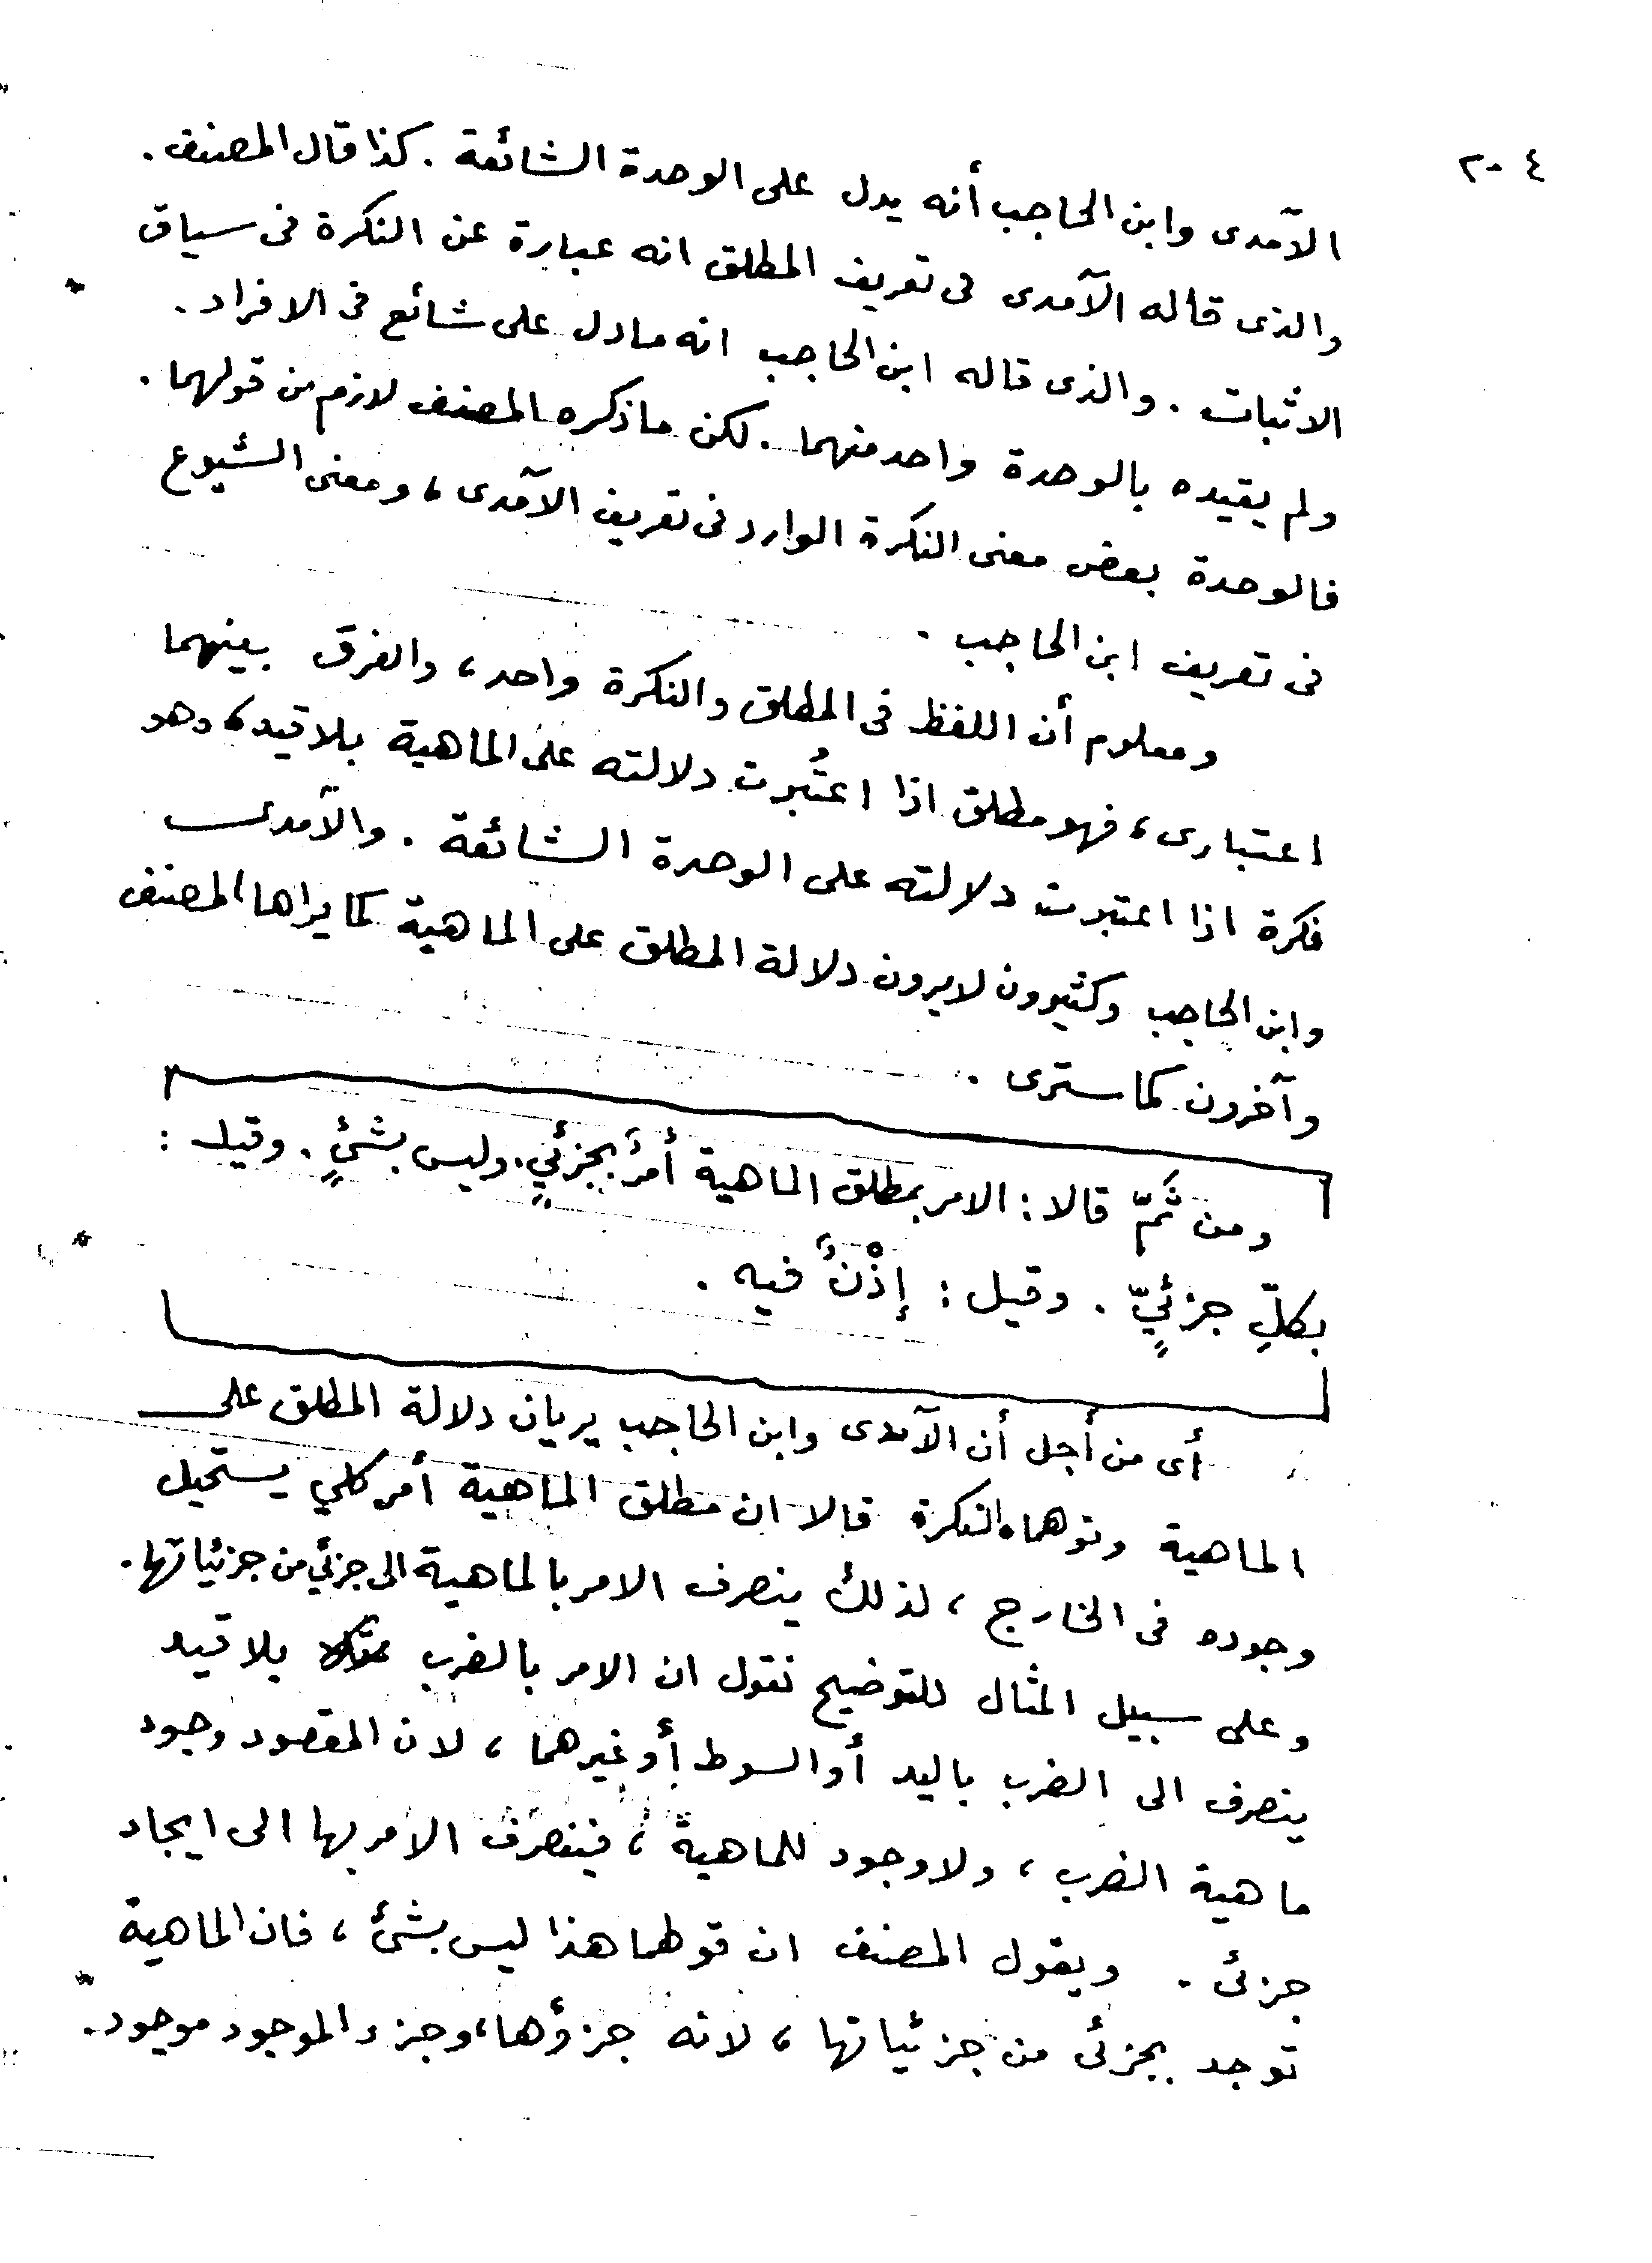 ٢٠٤
الآمدى وابن الحاجب أنه يدل على الوحدة الشائعة . كذا قال المصنف .
والذى قاله الآمدى فى تعريف المطلق انه عبارة عن النكرة فى سياق
الاثبات . والذى قاله ابن الحاجب انه مادل على شائع فى الافراد .
ولم يقيده بالوحدة واحد منهما . لكن ماذكره المصنف لازم من قولهما .
فالوحدة بعض معنى النكرة الوارد فى تعريف الآمدى ، ومعنى الشيوع
فى تعريف ابن الحاجب .
ومعلوم أن اللفظ فى المطلق والنكرة واحد ، والفرق بينهما
اعتبارى ، فهو مطلق اذا اعتُبرت دلالته على الماهية بلا قيد ، وهو
نكرة اذا اعتبرت دلالته على الوحدة الشائعة . والآمدى
وابن الحاجب وكثيرون لا يرون دلالة المطلق على الماهية كما يراها المصنف
وآخرون كما سترى .
ومن ثَمّ قالا : الامر بمطلق الماهية أمرٌ بجزئيٍ . وليس بشئٍ . وقيل :
بكلِّ جزئيٍّ . وقيل : إذْنٌ فيه .
أى من أجل أن الآمدى وابن الحاجب يريان دلالة المطلق على
الماهية وتوهماه النكرة قالا ان مطلق الماهية أمر كلي يستحيل
وجوده فى الخارج ، لذلك ينصرف الامر بالماهية الى جزئي من جزئياتها .
وعلى سبيل المثال للتوضيح نقول ان الامر بالضرب بلا قيد
ينصرف الى الضرب باليد أو السوط أو غيرهما ، لان المقصود وجود
ماهية الضرب ، ولا وجود للماهية ، فينصرف الامر بها الى ايجاد
جزئى . ويقول المصنف ان قولهما هذا ليس بشئ ، فان الماهية
توجد بجزئى من جزئياتها ، لانه جزؤها ، وجزء الموجود موجود .